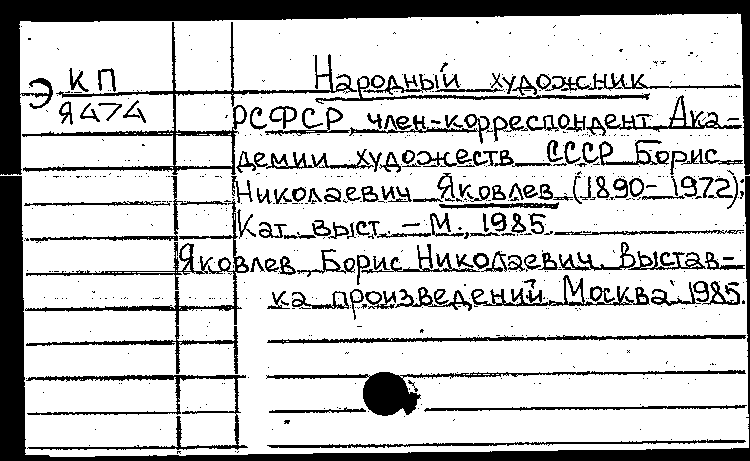 Э КП
Я474
Народный художник
РСФСР, член-корреспондент Ака-
демии художеств СССР Борис
Николаевич Яковлев (1890-1972):
Кат. выст. – М., 1985.
Яковлев, Борис Николаевич. Выстав-
ка произведений. Москва. 1985.